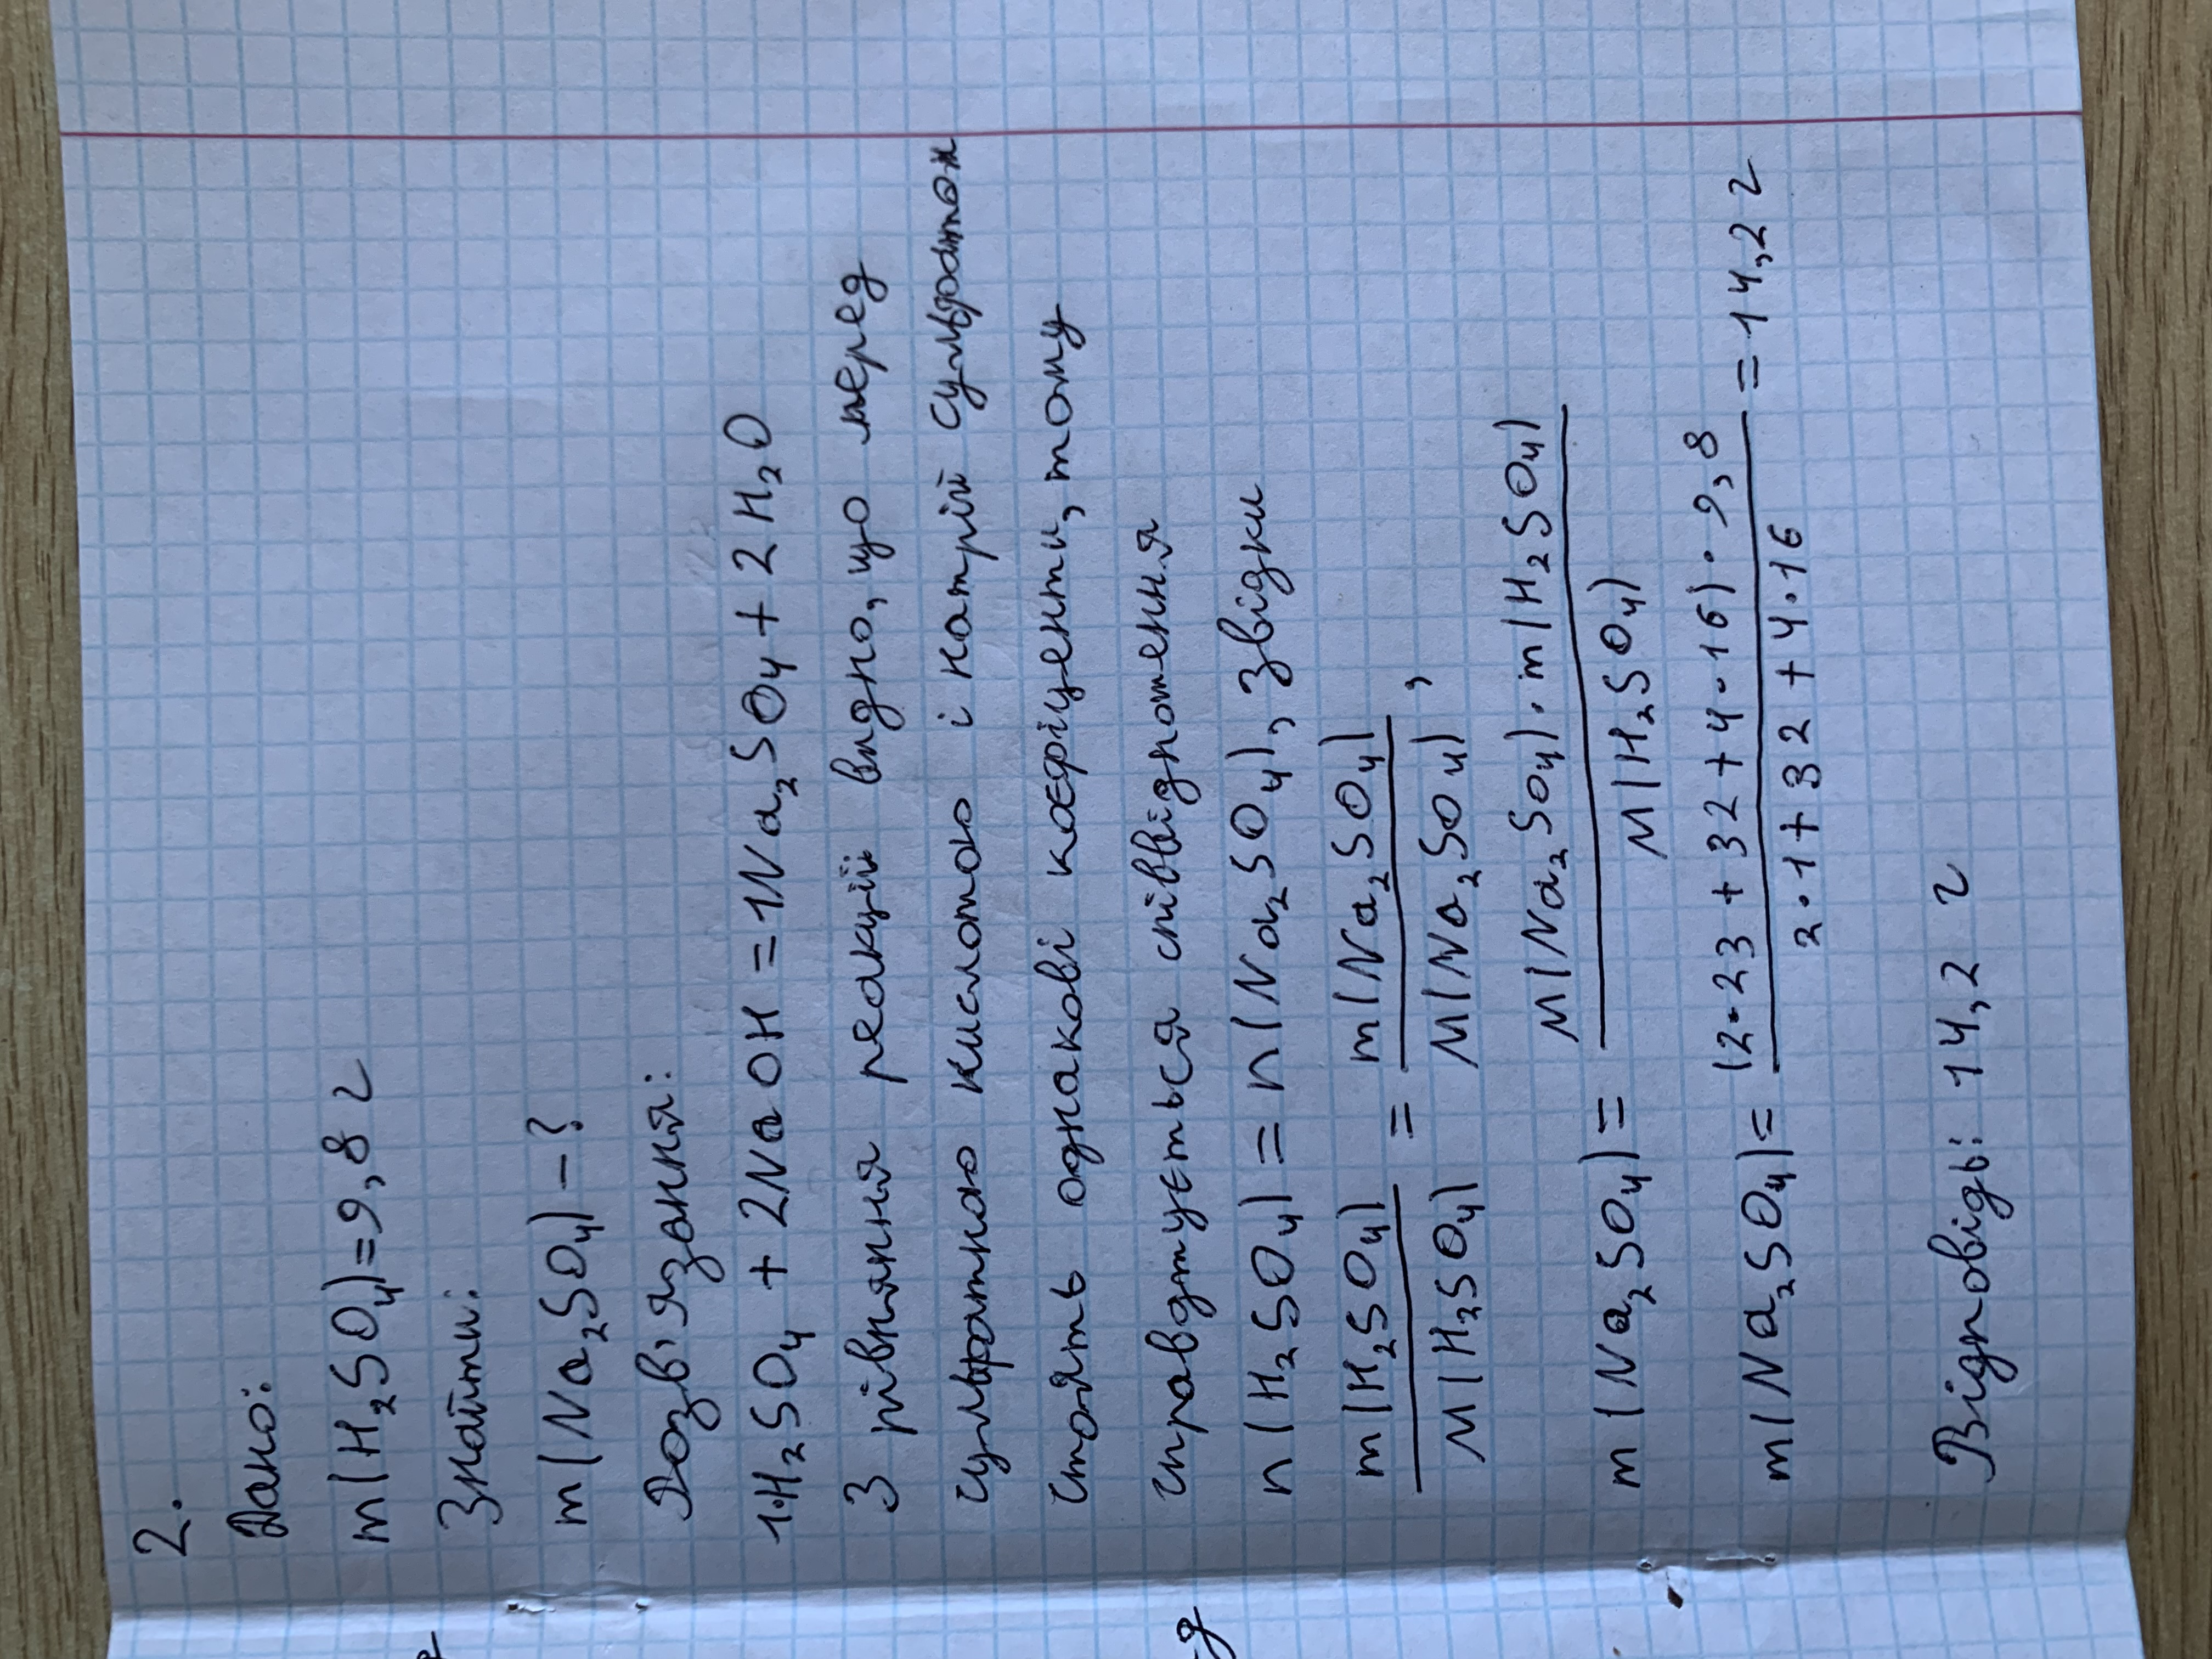 2.
Дано:
m(H₂SO₄)=9,8 г
Знайти:
m(Na₂SO₄)-?
Розв'язання:
1·H₂SO₄ + 2NaOH = 1Na₂SO₄ + 2H₂O
З рівняння реакції видно, що перед
сульфатною кислотою і натрій сульфатом
стоять однакові коефіцієнти, тому
справджується співвідношення
n(H₂SO₄) = n(Na₂SO₄), звідки
m(H₂SO₄) / M(H₂SO₄) = m(Na₂SO₄) / M(Na₂SO₄),
m(Na₂SO₄) = M(Na₂SO₄)·m(H₂SO₄) / M(H₂SO₄)
m(Na₂SO₄) = (2·23+32+4·16)·9,8 / 2·1+32+4·16 = 14,2 г
Відповідь: 14,2 г